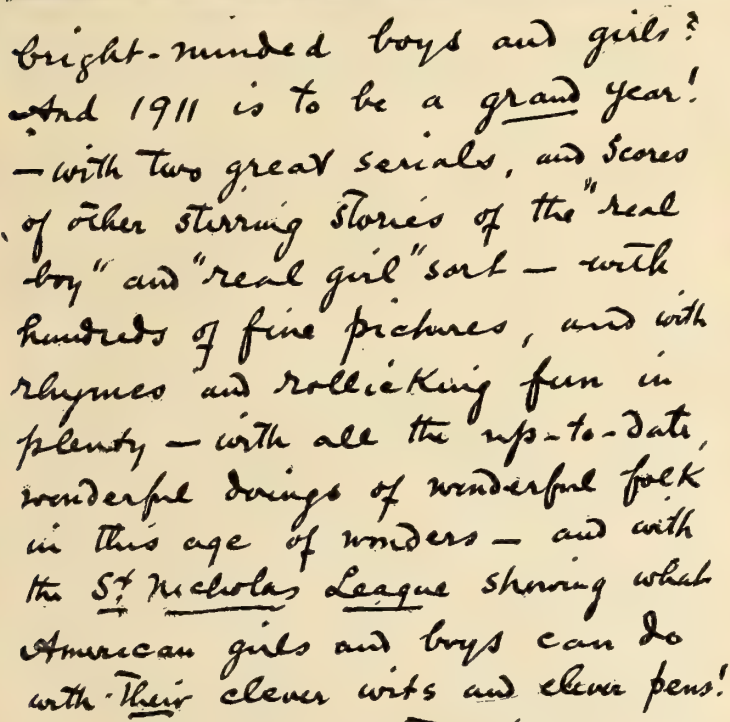 bright-minded boys and girls?
And 1911 is to be a grand year!
— with two great serials, and scores
of other stirring stories of the "real
boy" and "real girl" sort — with
hundreds of fine pictures, and with
rhymes and rollicking fun in
plenty — with all the up-to-date,
wonderful doings of wonderful folk
in this age of wonders — and with
the St Nicholas League showing what
American girls and boys can do
with their clever wits and clever pens!